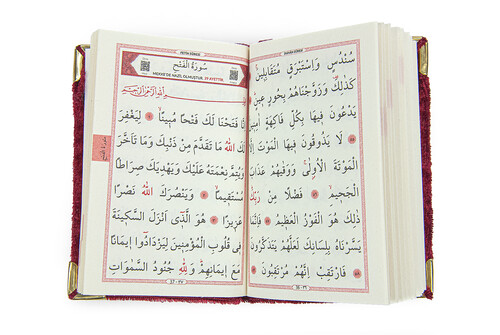 سُنْدُسٍ وَاِسْتَبْرَقٍ مُتَقَابِلِينَ
كَذٰلِكَ وَزَوَّجْنَاهُمْ بِحُورٍ عِينٍ
يَدْعُونَ فِيهَا بِكُلِّ فَاكِهَةٍ اٰمِنِينَ
لَا يَذُوقُونَ فِيهَا الْمَوْتَ اِلَّا
الْمَوْتَةَ الْاُولٰى وَوَقٰيهُمْ عَذَابَ
الْجَحِيمِ فَضْلًا مِنْ رَبِّكَ
ذٰلِكَ هُوَ الْفَوْزُ الْعَظِيمُ فَاِنَّمَا
يَسَّرْنَاهُ بِلِسَانِكَ لَعَلَّهُمْ يَتَذَكَّرُونَ
فَارْتَقِبْ اِنَّهُمْ مُرْتَقِبُونَ
FETİH SÛRESİ
سُورَةُ الْفَتْحِ
MEKKE'DE NAZİL OLMUŞTUR. 29 AYETTİR.
بِسْمِ اللهِ الرَّحْمٰنِ الرَّحِيمِ
اِنَّا فَتَحْنَا لَكَ فَتْحًا مُبِينًا لِيَغْفِرَ
لَكَ اللهُ مَا تَقَدَّمَ مِنْ ذَنْبِكَ وَمَا تَاَخَّرَ
وَيُتِمَّ نِعْمَتَهُ عَلَيْكَ وَيَهْدِيَكَ صِرَاطًا
مُسْتَقِيمًا وَيَنْصُرَكَ اللهُ نَصْرًا
عَزِيزًا هُوَ الَّذِى اَنْزَلَ السَّكِينَةَ
فِى قُلُوبِ الْمُؤْمِنِينَ لِيَزْدَادُوا اِيمَانًا
مَعَ اِيمَانِهِمْ وَلِلّٰهِ جُنُودُ السَّمٰوَاتِ